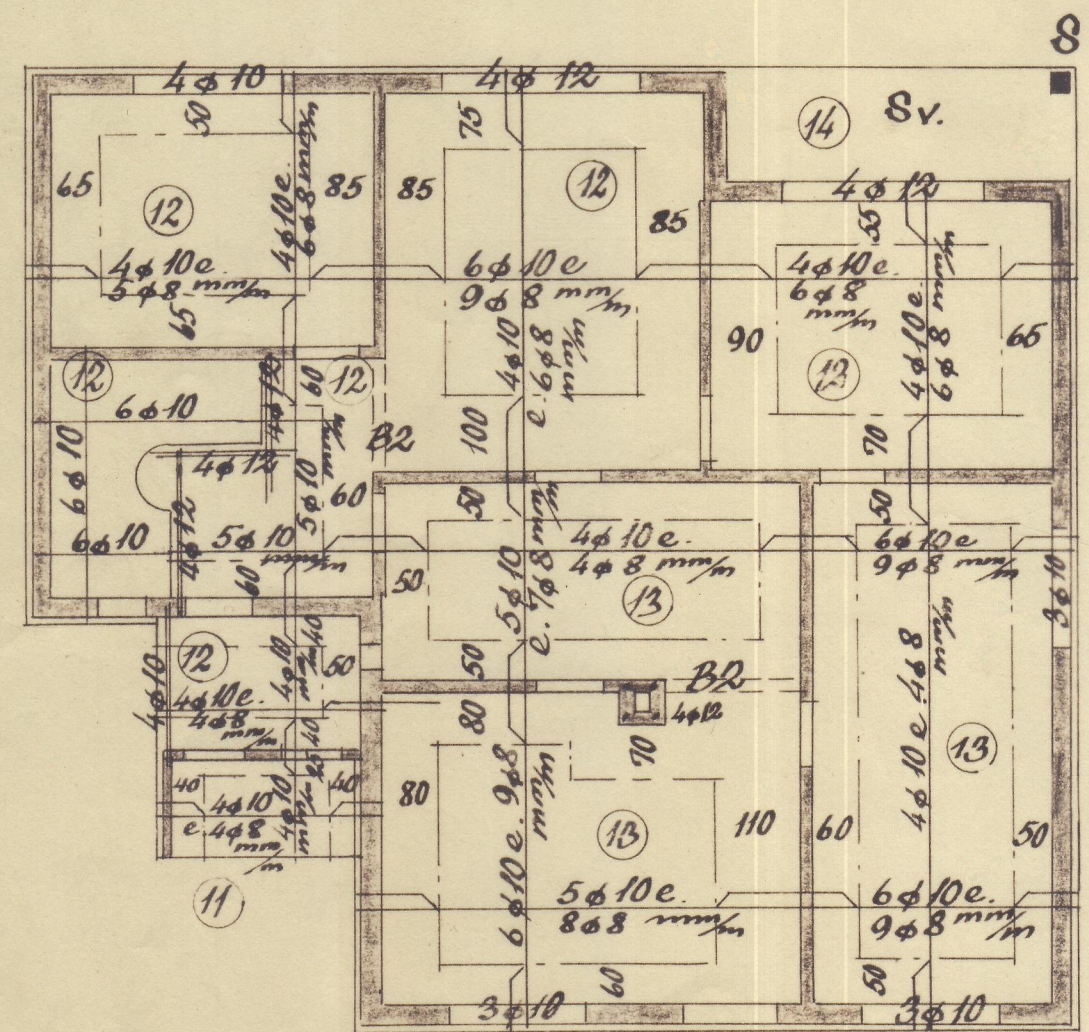 S
4ϕ10
4ϕ12
14
Sv.
50
75
65
12
4ϕ10e.
6ϕ8 mm/m
85
85
12
85
4ϕ12
55
4ϕ10e.
5ϕ8 mm/m
6ϕ10e
9ϕ8 mm/m
4ϕ10e.
6ϕ8
mm/m
4ϕ10e.
6ϕ8 mm/m
65
4ϕ10
e. 6ϕ8
mm/m
90
65
12
12
60
12
4ϕ12
6ϕ10
B2
100
70
6ϕ10
4ϕ12
5ϕ10
mm/m
60
50
50
6ϕ10
4ϕ12
5ϕ10
60
50
5ϕ10
e. 7ϕ8
mm/m
4ϕ10e.
4ϕ8 mm/m
13
6ϕ10e
9ϕ8 mm/m
3ϕ10
12
4ϕ10
40
mm/m
50
50
4ϕ10
4ϕ10e.
4ϕ8
mm/m
B2
4ϕ12
80
70
4ϕ10e. 4ϕ8
mm/m
13
40
25
40
4ϕ10
e. 4ϕ8
mm/m
4ϕ10
mm/m
40
80
6ϕ10e. 9ϕ8
mm/m
13
110
60
50
11
5ϕ10e.
8ϕ8 mm/m
6ϕ10e.
9ϕ8 mm/m
60
50
3ϕ10
3ϕ10